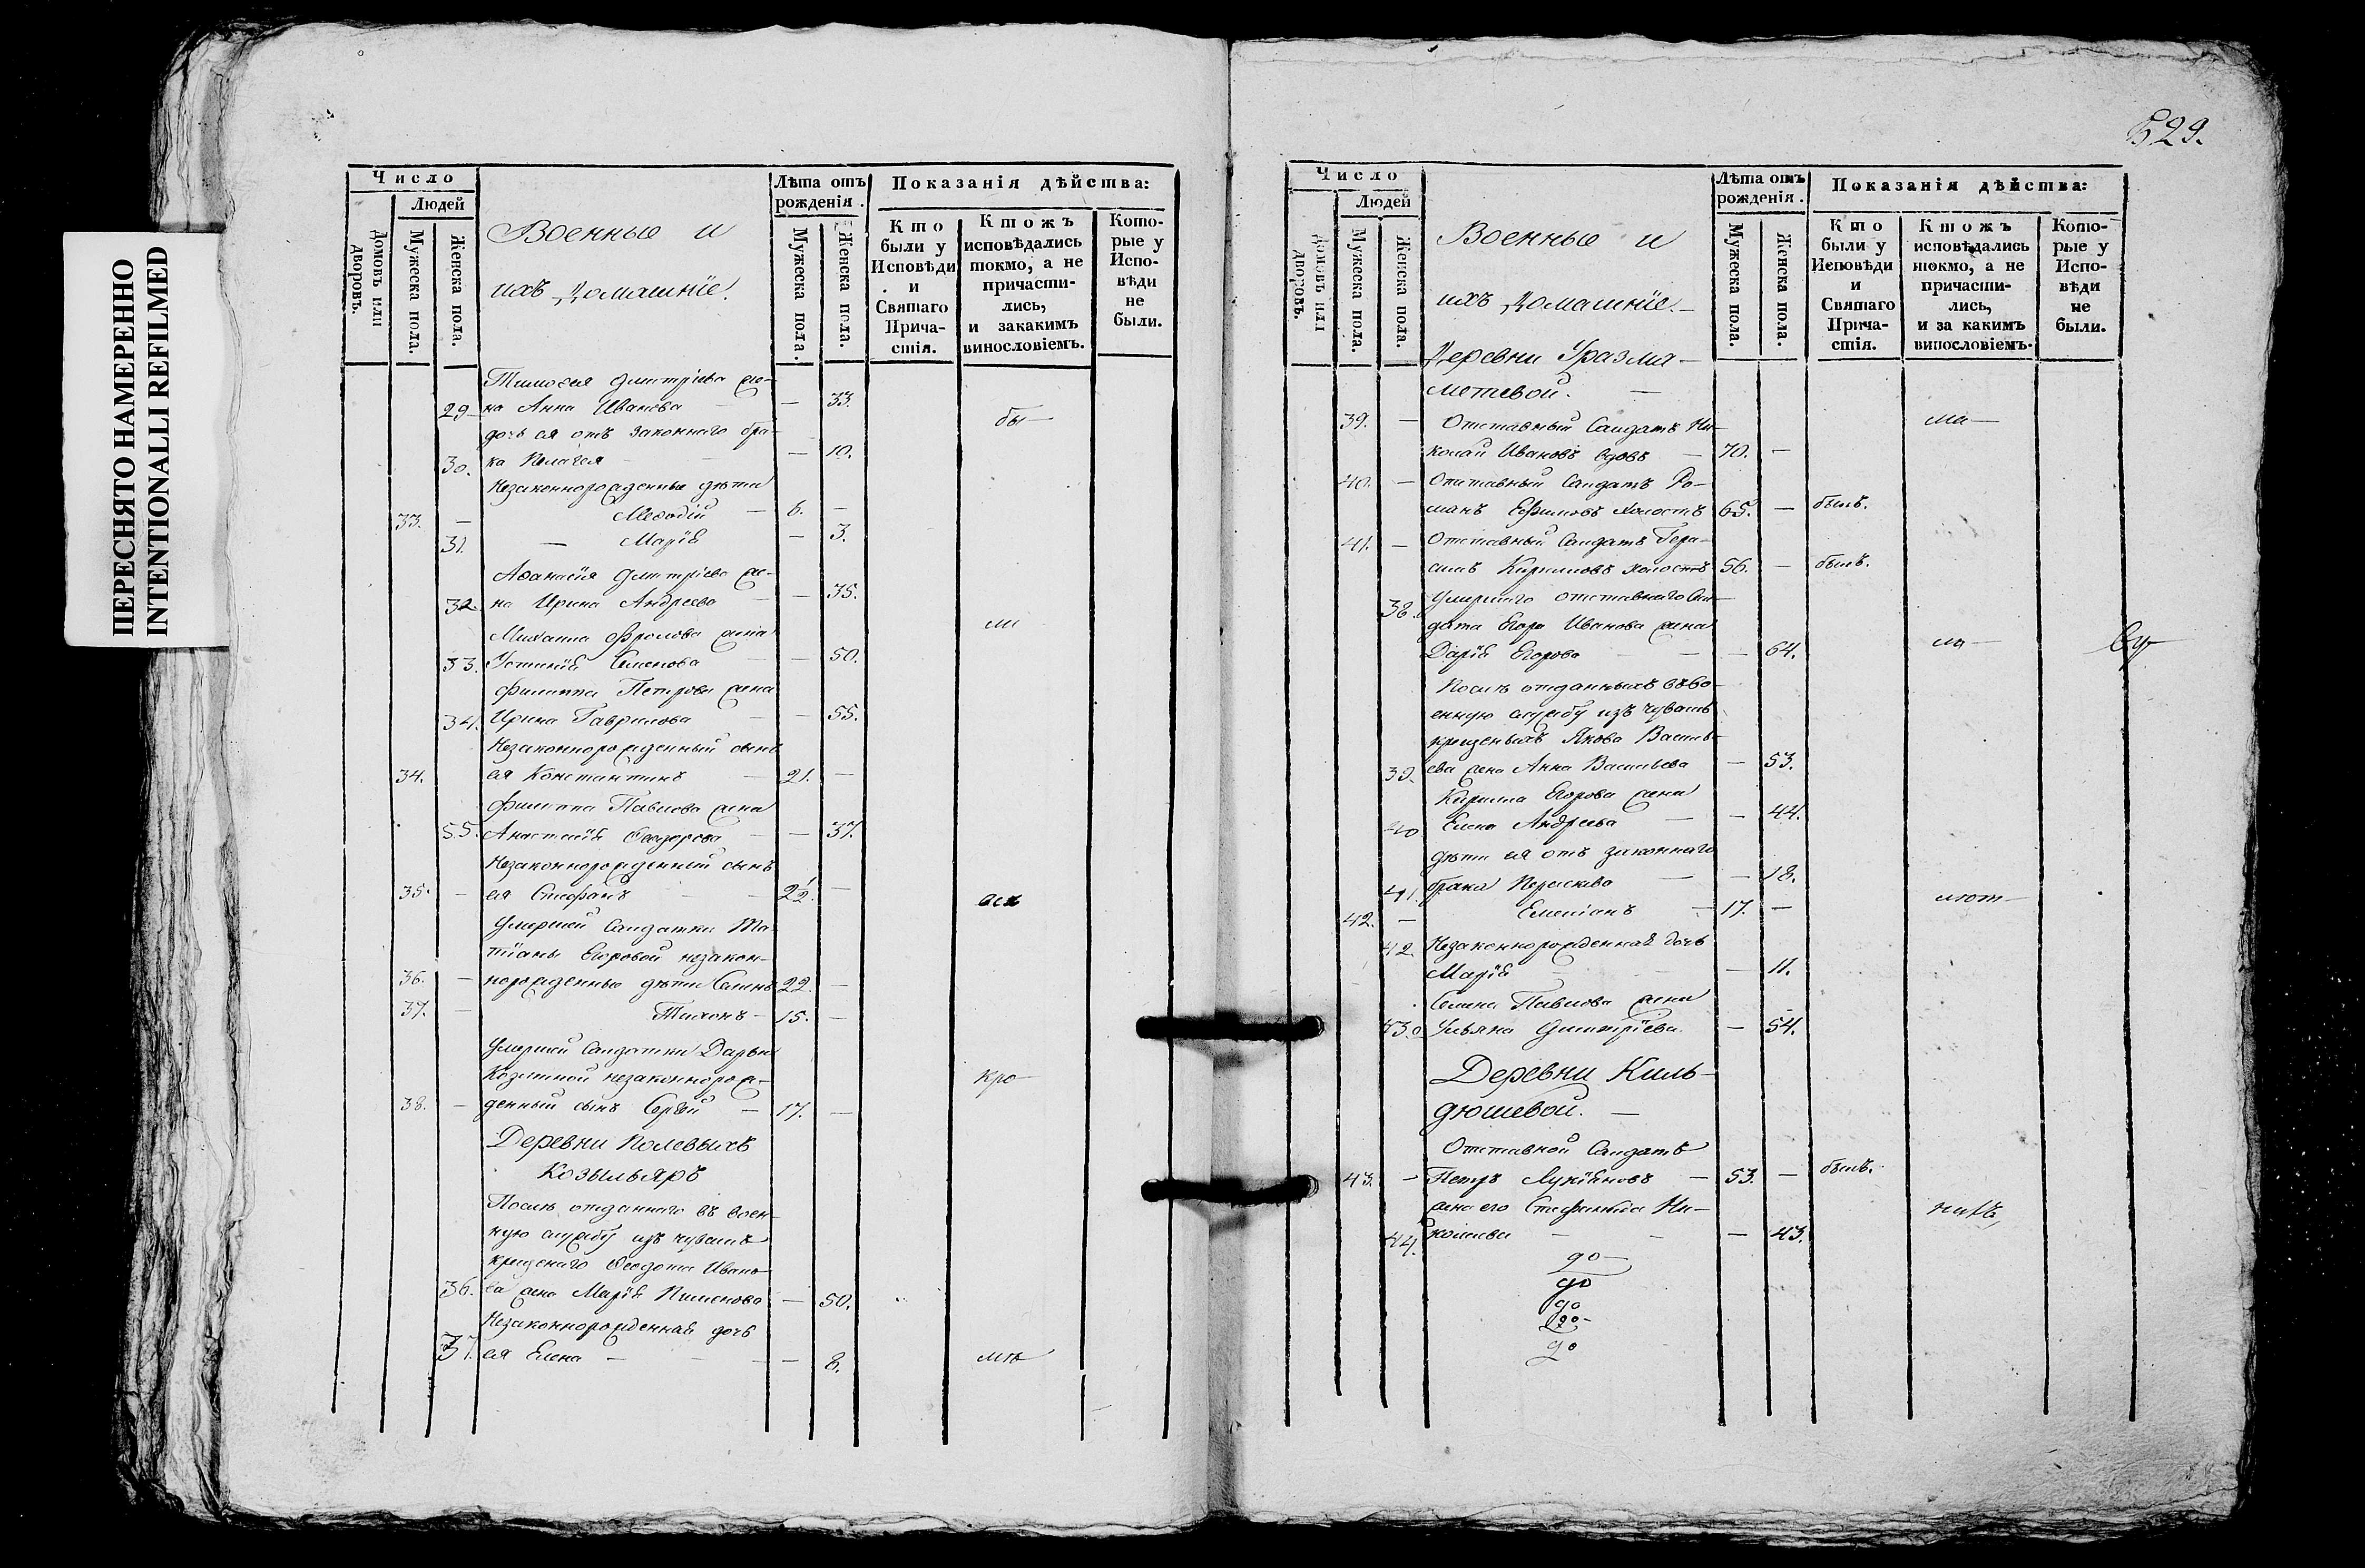 ПЕРЕСНЯТО НАМЕРЕННО
INTENTIONALLI REFILMED
Число
Людей
Домовъ или дворовъ.
Мужеска пола.
Женска пола.
Военные и
ихъ домашніе.
Лѣта отъ рожденія.
Мужеска пола.
Женска пола.
Показанія дѣйства:
Кто были у Исповѣди и Святаго Причастія.
Ктожъ исповѣдались токмо, а не причастились, и закакимъ винословіемъ.
Которые у Исповѣди не были.
Тимофея Дмитріева же-
29 на Анна Иванова — 33.
бы-
дочь ея отъ законнаго бра-
30. ка Пелагея — 10.
Незаконнорожденные дѣти
33. — Меѳодій — 6. —
31. — Марія — 3.
Аѳанасія Дмитріева же-
32. на Ирина Андреева — 35.
Михаила Фролова жена
ли
33. Устинія Семенова — 50.
Филиппа Петрова жена
34. Ирина Гаврилова — 55.
Незаконнорожденный сынъ
34. ея Константинъ — 21. —
Филиппа Павлова жена
55. Анастасія Ѳеодорова — 37.
Незаконнорожденный сынъ
35. — ея Стефанъ — 2½. —
Умершей Салдатки Та-
тіаны Егоровой незакон-
36. — норожденные дѣти Семенъ 22. —
37. — Тихонъ — 15. —
Умершей Салдатки Дарьи
Козминой незаконнорож-
кро-
38. — денный сынъ Сергѣй — 17. —
Деревни Полевыхъ
Козыльяръ
Послѣ отданнаго въ воен-
ную службу изъ чувашъ
крещенаго Ѳедота Ивано-
36. ва жена Марія Пименова — 50.
Незаконнорожденная дочь
37. ея Елена — — 8.
мѣ
529.
Число
Людей
Домовъ или дворовъ.
Мужеска пола.
Женска пола.
Военные и
ихъ домашніе.
Лѣта отъ рожденія.
Мужеска пола.
Женска пола.
Показанія дѣйства:
Кто были у Исповѣди и Святаго Причастія.
Ктожъ исповѣдались токмо, а не причастились, и за какимъ винословіемъ.
Которые у Исповѣди не были.
Деревни Уразма-
метевой. —
39. — Отставный Салдатъ Ни-
ма-
колай Ивановъ вдовъ — 70. —
40. — Отставный Салдатъ Ро-
манъ Ефимовъ холостъ 65. — былъ.
41. — Отставный Салдатъ Гера-
симъ Кириловъ холостъ 56. — былъ.
38. Умершаго отставнаго Сал-
дата Егора Иванова жена
Дарія Егорова — — 64.
ло-
Послѣ отданныхъ въ во-
енную службу изъ чувашъ
крещеныхъ Якова Василь-
39. ева жена Анна Васильева — 53.
Кирилла Егорова жена
40 Елена Андреева — — 44.
дѣти ея отъ законнаго
41. брака Параскева — — 18.
лют-
42. — Емеліанъ — 17. —
42. Незаконнорожденная дочь
Марія — 11.
Семена Павлова жена
43. Ульяна Дмитріева — 54.
Деревни Киль-
дюшевой. —
Отставной Салдатъ
43. — Петръ Лукіяновъ — 53. — былъ.
жена его Стефанида Ни-
44. колаева — — 43.